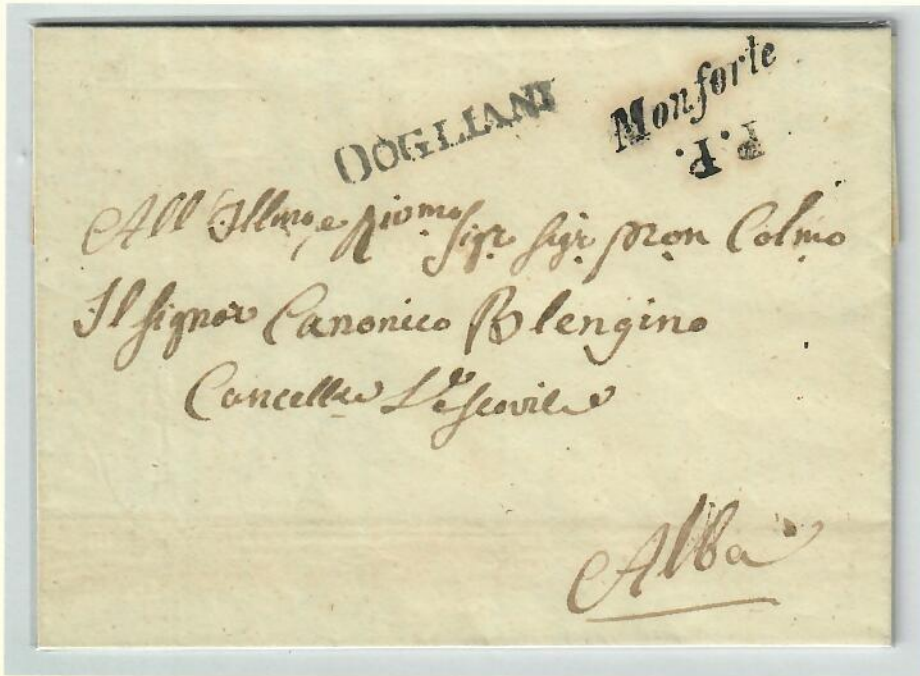 DOGLIANI
Monforte
P.P.
All'Illmo e Rivmo Sigr Sigr Pron Colmo
Il Signor Canonico Blengino
Cancellre Vescovile
Alba